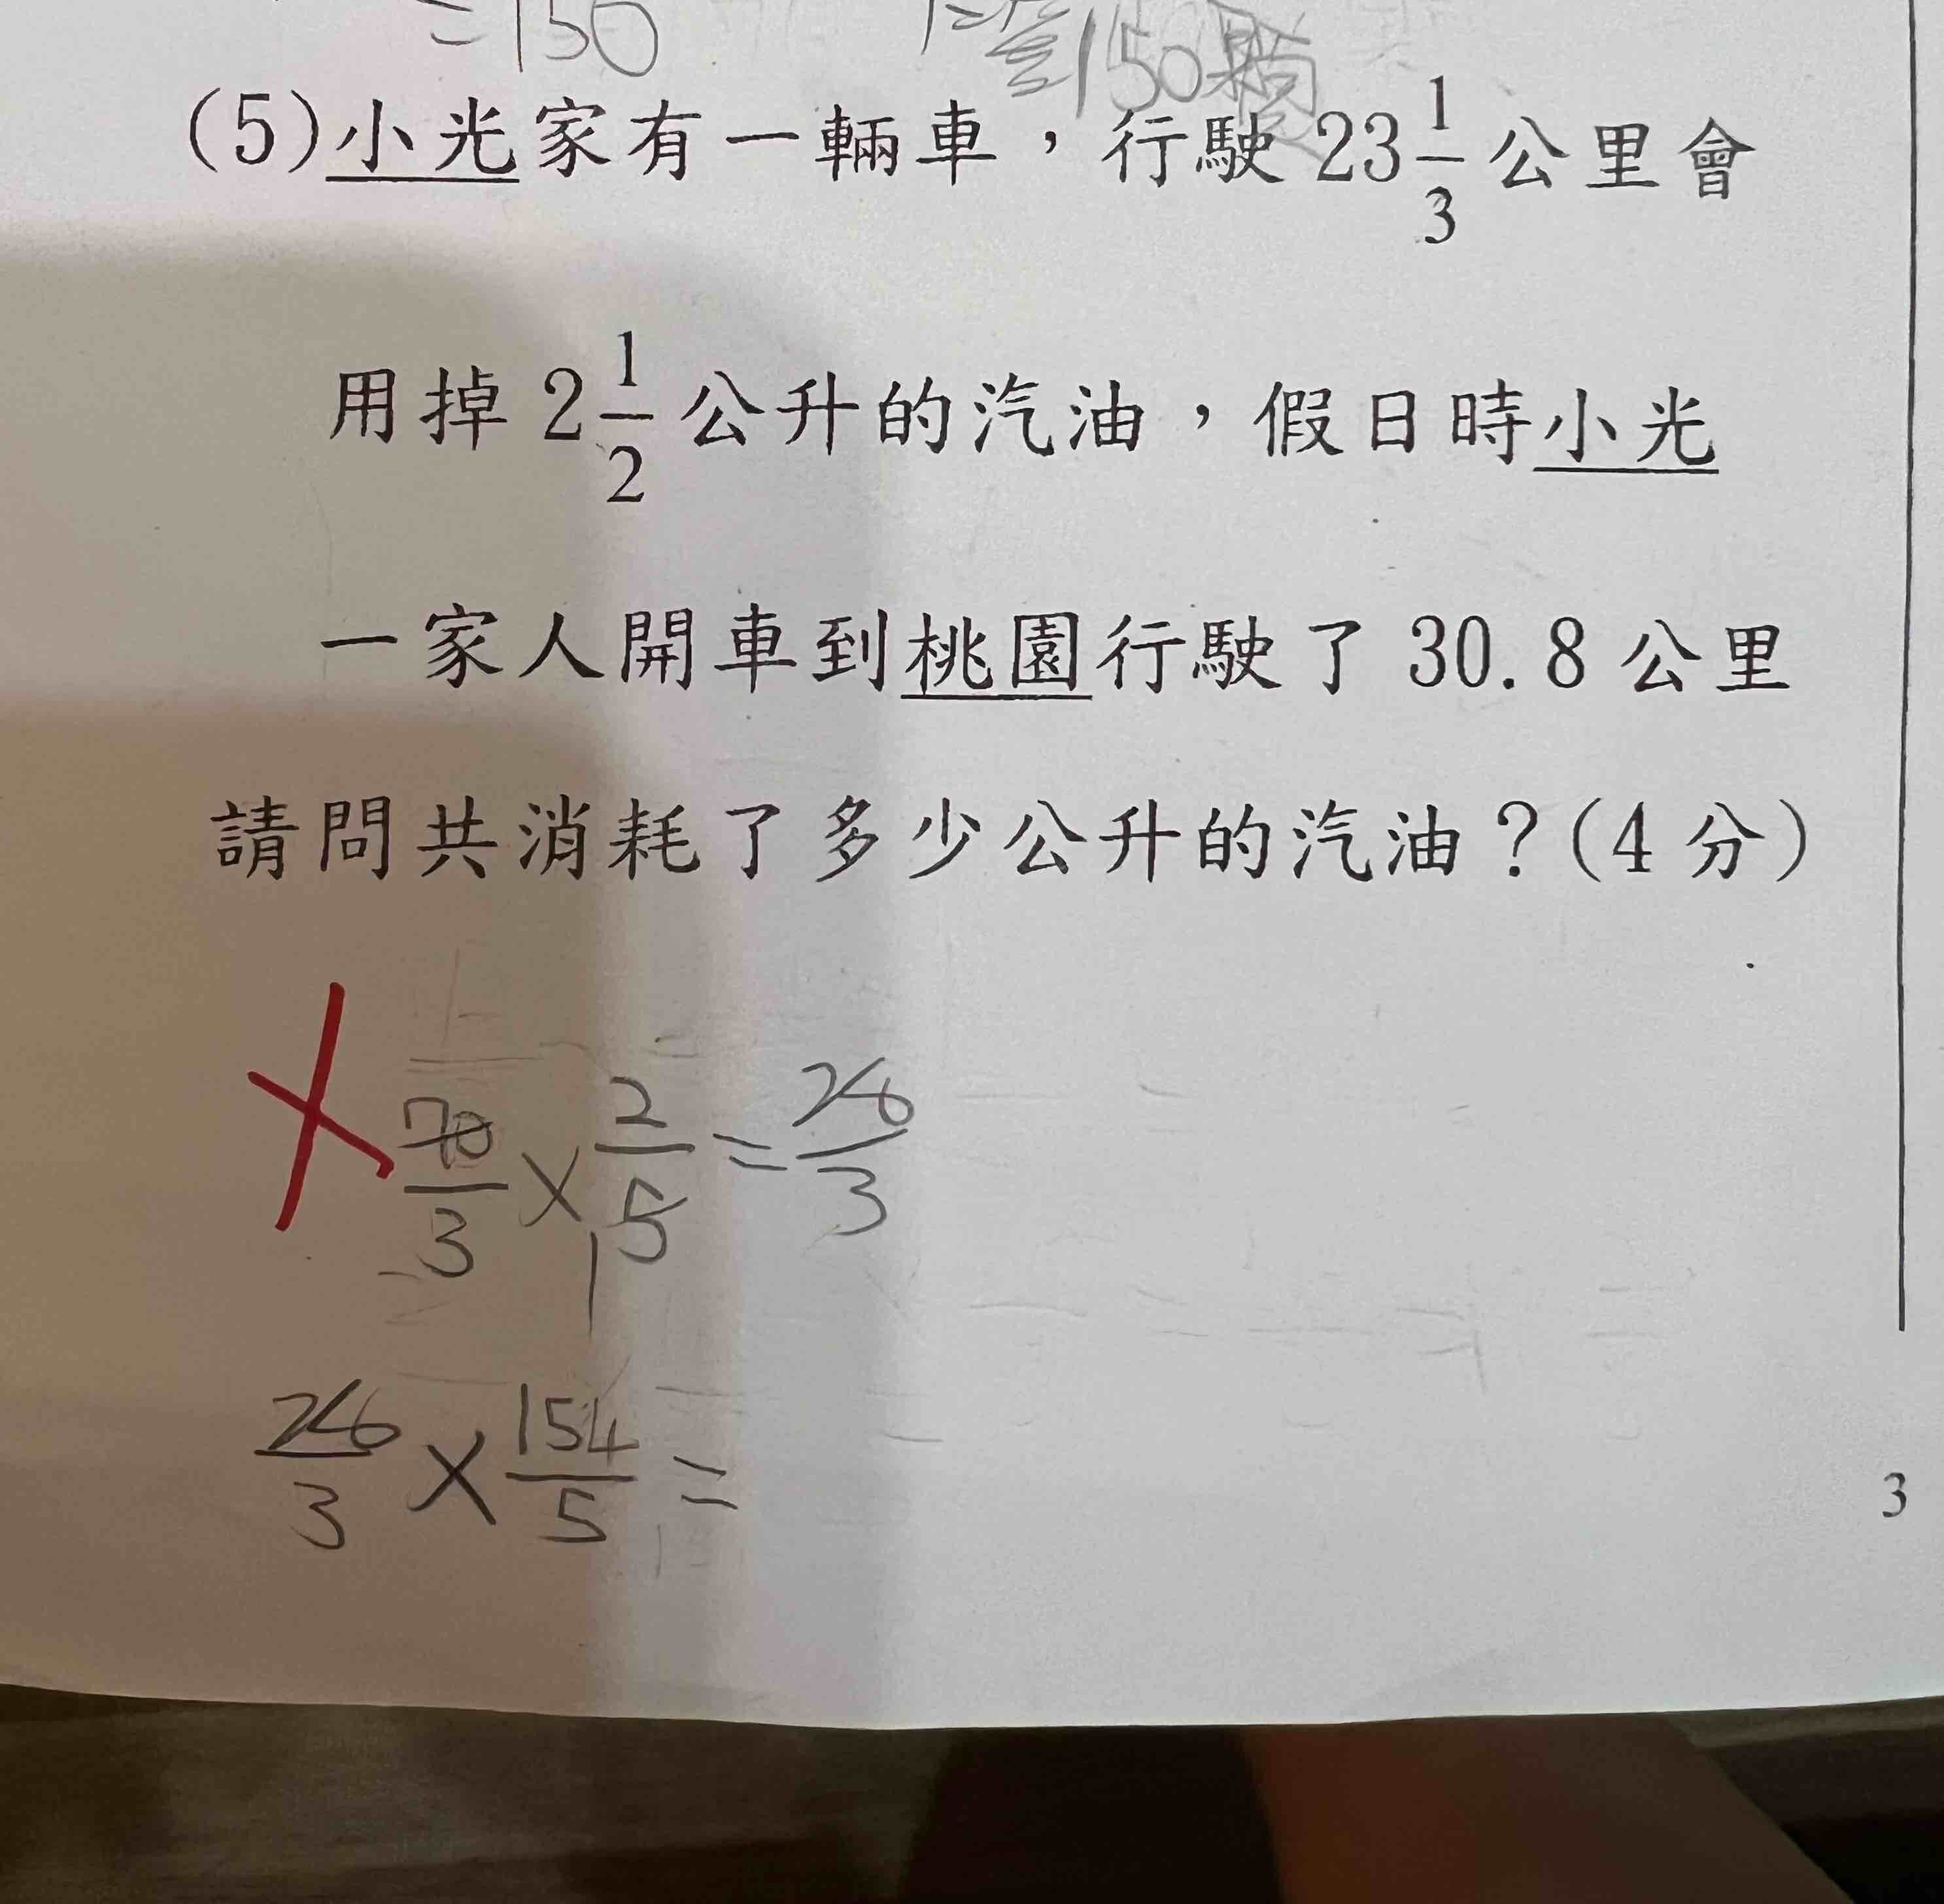 =150
150顆
(5)小光家有一輛車，行駛23 1/3公里會
用掉2 1/2公升的汽油，假日時小光
一家人開車到桃園行駛了30.8公里
請問共消耗了多少公升的汽油？(4分)
70/3 × 2/5 = 28/3
1
28/3 × 154/5 =
3